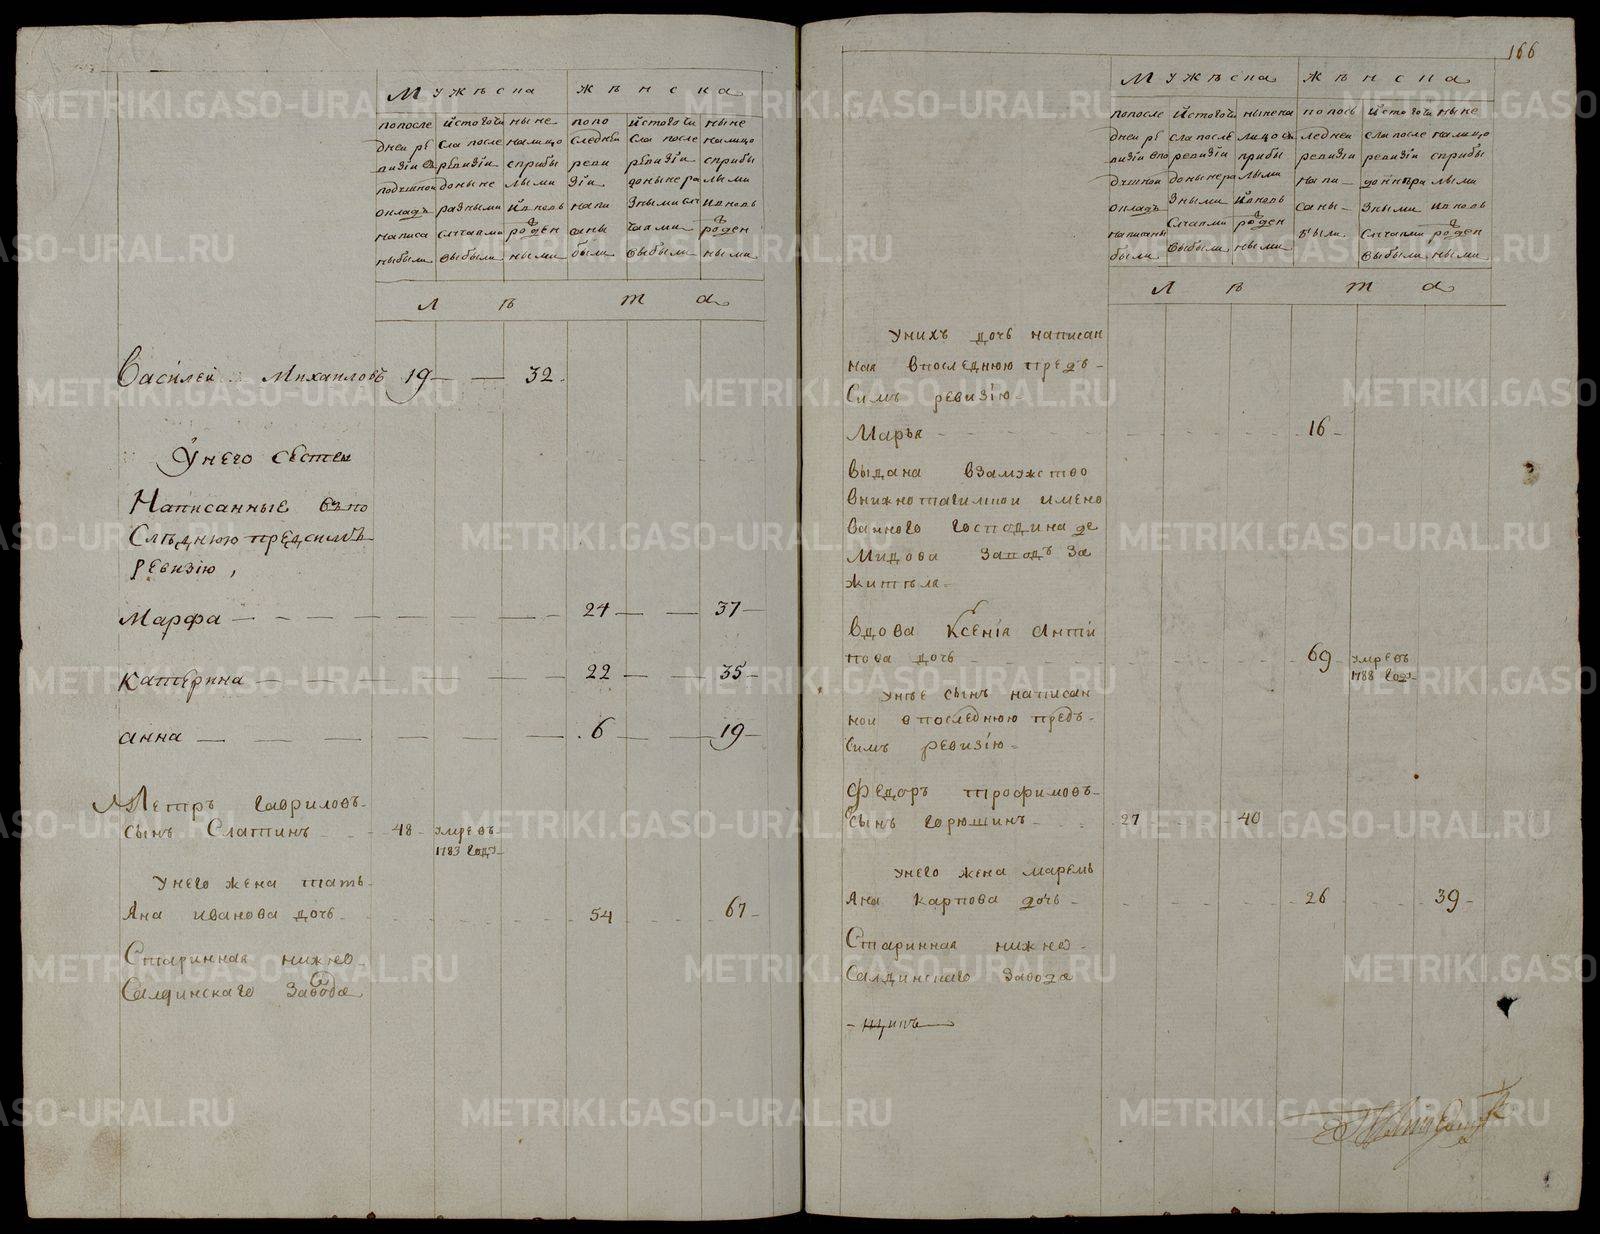 Мужеска женска
по после
дней ре
визiи в
подушной
окладъ
написа
ны были
и с того чи
сла после
ревизiи
до ныне
разными
случаями
выбыли
ныне
налицо
с прибы
лыми
и вновь
рожден
ными
по по
следней
реви
зiи
напи
саны
были
и с того чи
сла после
ревизiи
до ныне ра
зными слу
чаями
выбыли
ныне
налицо
с прибы
лыми
и вновь
рожден
ными
Л ѣ т а
Василей Михаиловъ 19 — — 32
У него сестры
Написанные въ по
слѣднюю предсимъ
ревизiю,
Марфа — 24 — — 37 —
Катерина — 22 — — 35 —
анна — 6 — — 19 —
Петръ Гавриловъ
сынъ Слатинъ 48 умре въ
1783 году
У него жена тать
яна иванова дочь 54 67
Старинная нижно
Салдинскаго завода
166
Мужеска женска
по после
дней ре
визiи в по
душной
окладъ
написаны
были
и с того чи
сла после
ревизiи
до ныне ра
зными
случаями
выбыли
ныне на
лицо с
прибы
лыми
и вновь
рожден
ными
по посъ
ледней
ревизiи
напи
саны
были
и с того чи
сла после
ревизiи
до ныне ра
зными
случаями
выбыли
ныне
налицо
с прибы
лыми
и вновь
рожден
ными
Л ѣ т а
У нихъ дочь написан
ная в последнюю предъ
симъ ревизiю
Марья 16
выдана взамужство
в нижнотагилской имено
ванного господина де
мидова заводъ за
жителя
вдова Ксенiя Анти
пова дочь 69 умре въ
1788 году
У нѣе сынъ написан
ной в последнюю предъ
симъ ревизiю
Федоръ трофимовъ
сынъ Горюшинъ 27 40
У него жена маремь
яна карпова дочь 26 39
Старинная нижно
Салдинскаго завода
METRIKI.GASO-URAL.RU